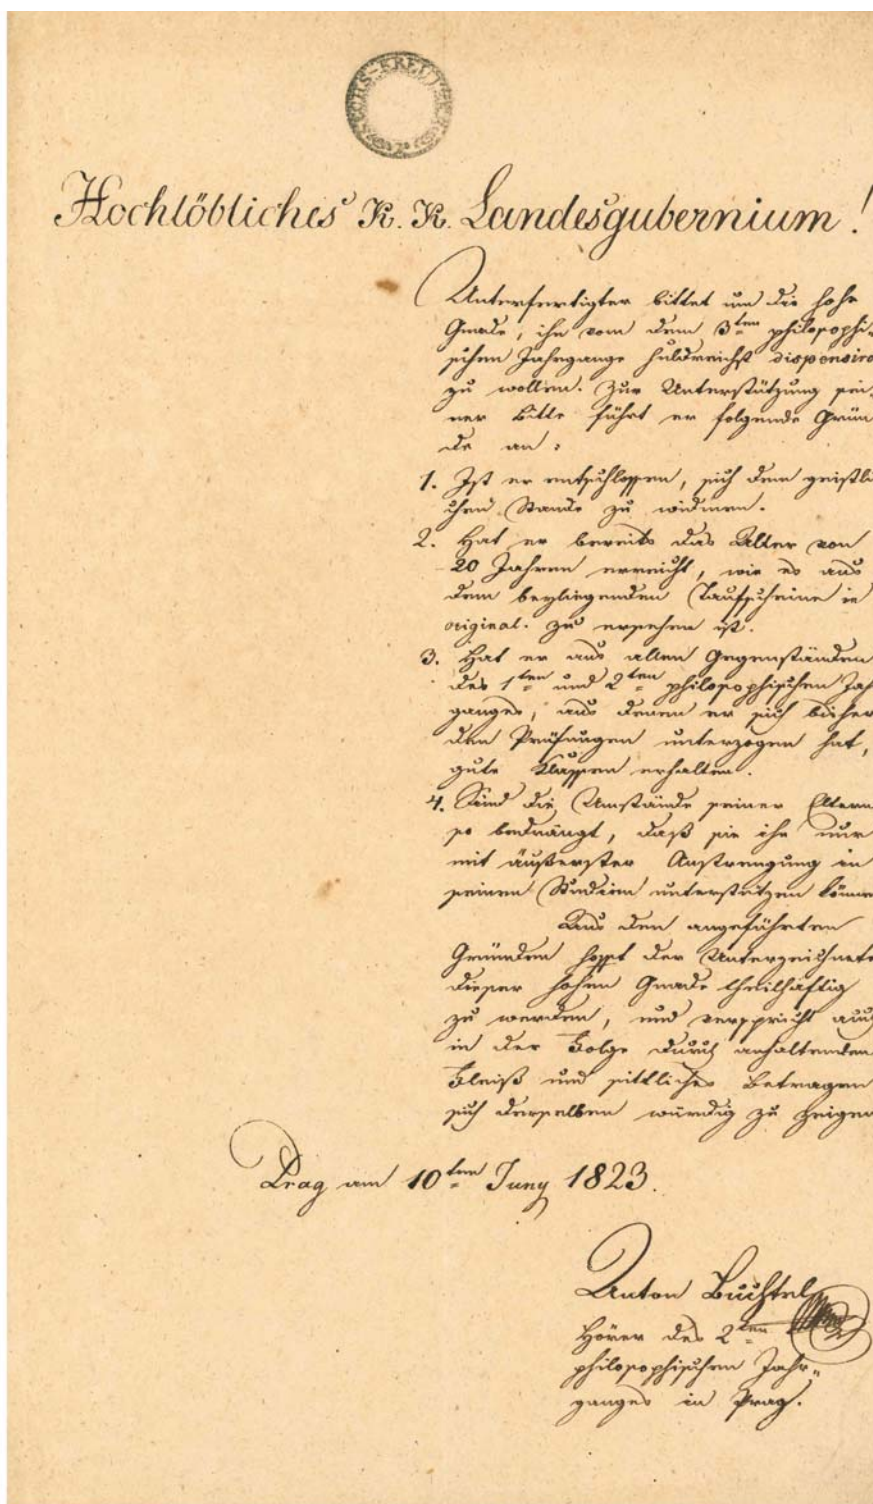 SECHS-KREUTZER
Hochlöbliches K. K. Landesgubernium!
Unterfertigter bittet um die hohe
Gnade, ihn von dem 3ten philosophi-
schen Jahrgange huldreichst dispensiren
zu wollen. Zur Unterstützung sei-
ner Bitte führt er folgende Grün
de an:
1. Ist er entschlossen, sich dem geistli
chen Stande zu widmen.
2. Hat er bereits das Alter von
20 Jahren erreicht, wie es aus
dem beyliegenden Taufscheine in
original. zu ersehen ist.
3. Hat er aus allen Gegenständen
des 1ten und 2ten philosophischen Jah
ganges, aus denen er sich bisher
den Prüfungen unterzogen hat,
gute Klassen erhalten.
4. Sind die Umstände seiner Eltern
so bedrängt, daß sie ihn nur
mit äußerster Anstrengung in
seinen Studien unterstützen könne
Aus den angeführten
Gründen hofft der Unterzeichnete
dieser hohen Gnade theilhäftig
zu werden, und verspricht auch
in der Folge durch anhaltenden
Fleiß und sittliches Betragen
sich derselben würdig zu zeigen
Prag am 10ten Juny 1823.
Anton Buchtel
Hörer des 2ten
philosophischen Jahr-
ganges in Prag.